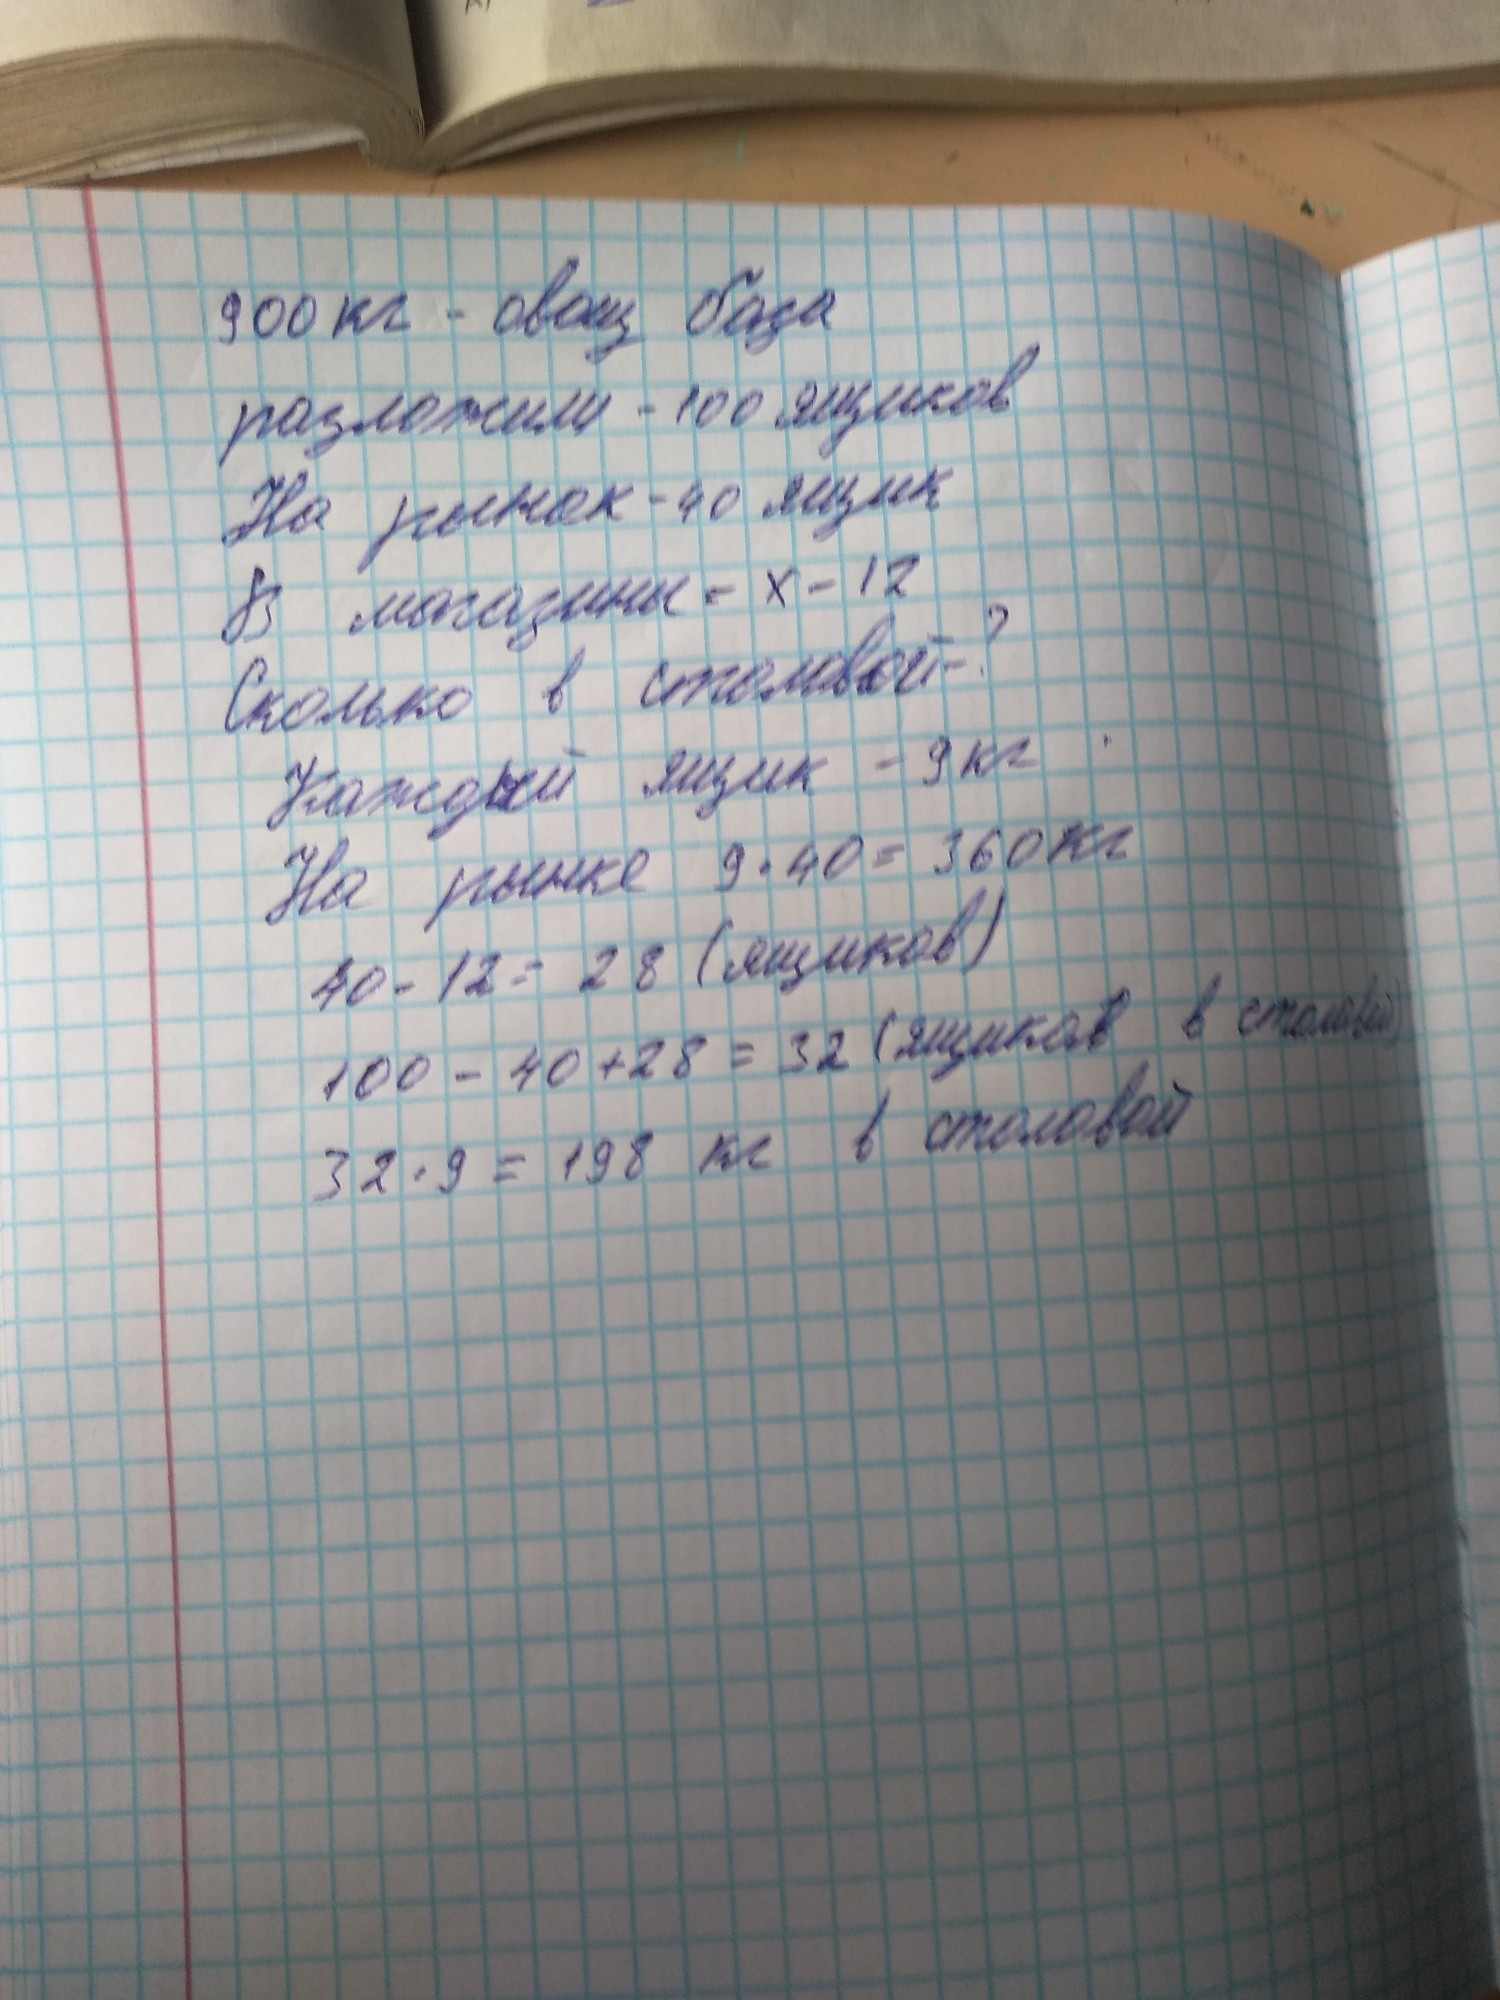 900 кг - овощ база
разложили - 100 ящиков
На рынок - 40 ящик
В магазины - х - 12
Сколько в столовой - ?
Каждый ящик - 9 кг
На рынке 9 · 40 = 360 кг
40 - 12 = 28 (ящиков)
100 - 40 + 28 = 32 (ящиков в столовой)
32 · 9 = 198 кг в столовой